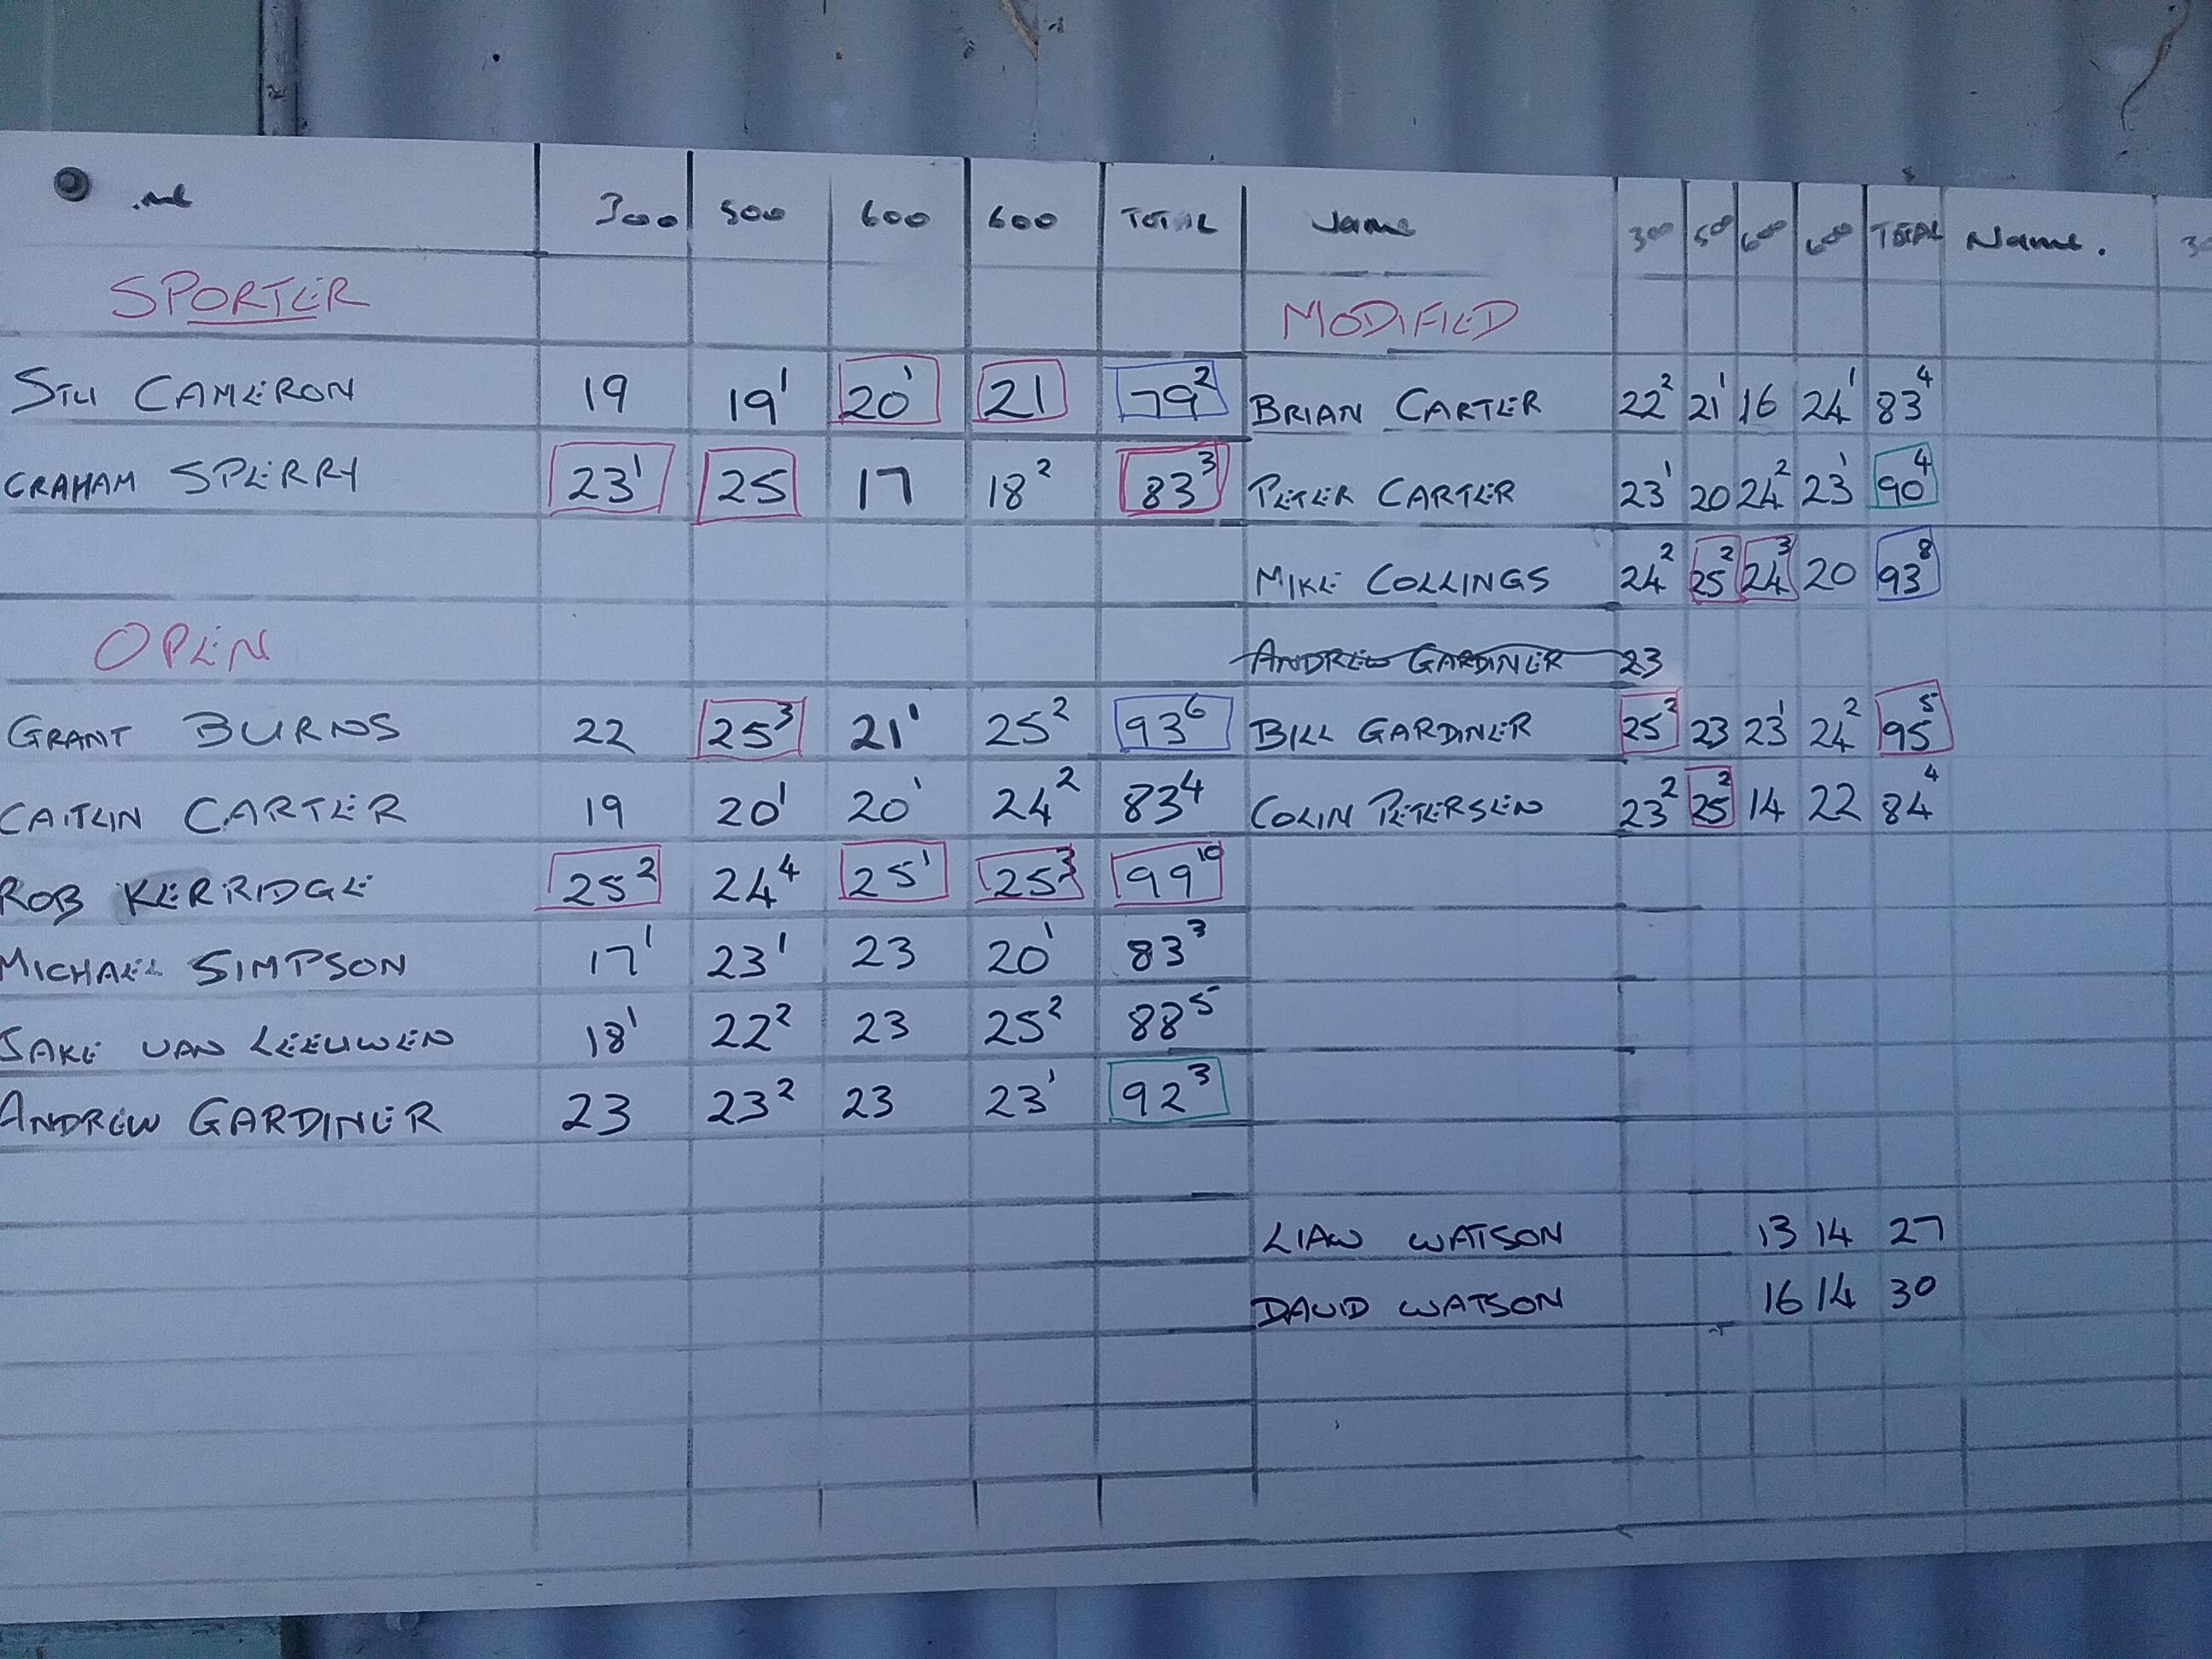 300 500 600 600 TOTAL Name 300 500 600 600 TOTAL Name.
SPORTER MODIFIED
CAMERON 19 19¹ 20¹ 21 79² BRIAN CARTER 22² 21¹ 16 24¹ 83⁴
GRAHAM SPERRY 23¹ 25 17 18² 83³ PETER CARTER 23¹ 20 24² 23¹ 90⁴
MIKE COLLINGS 24² 25² 24³ 20 93⁸
OPEN ANDREW GARDINER 23
GRANT BURNS 22 25³ 21¹ 25² 93⁶ BILL GARDINER 25² 23 23¹ 24² 95⁵
CAITLIN CARTER 19 20¹ 20¹ 24² 83⁴ COLIN PETERSEN 23² 25² 14 22 84⁴
ROB KERRIDGE 25² 24⁴ 25¹ 25³ 99¹⁰
MICHAEL SIMPSON 17¹ 23¹ 23 20¹ 83³
JAKE VAN LEEUWEN 18¹ 22² 23 25² 88⁵
ANDREW GARDINER 23 23² 23 23¹ 92³
LIAM WATSON 13 14 27
DAVID WATSON 16 14 30